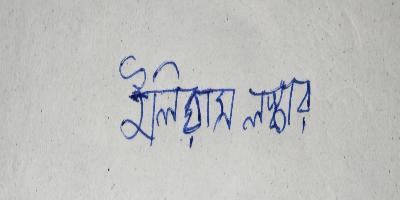 ইলিয়াস লস্কর